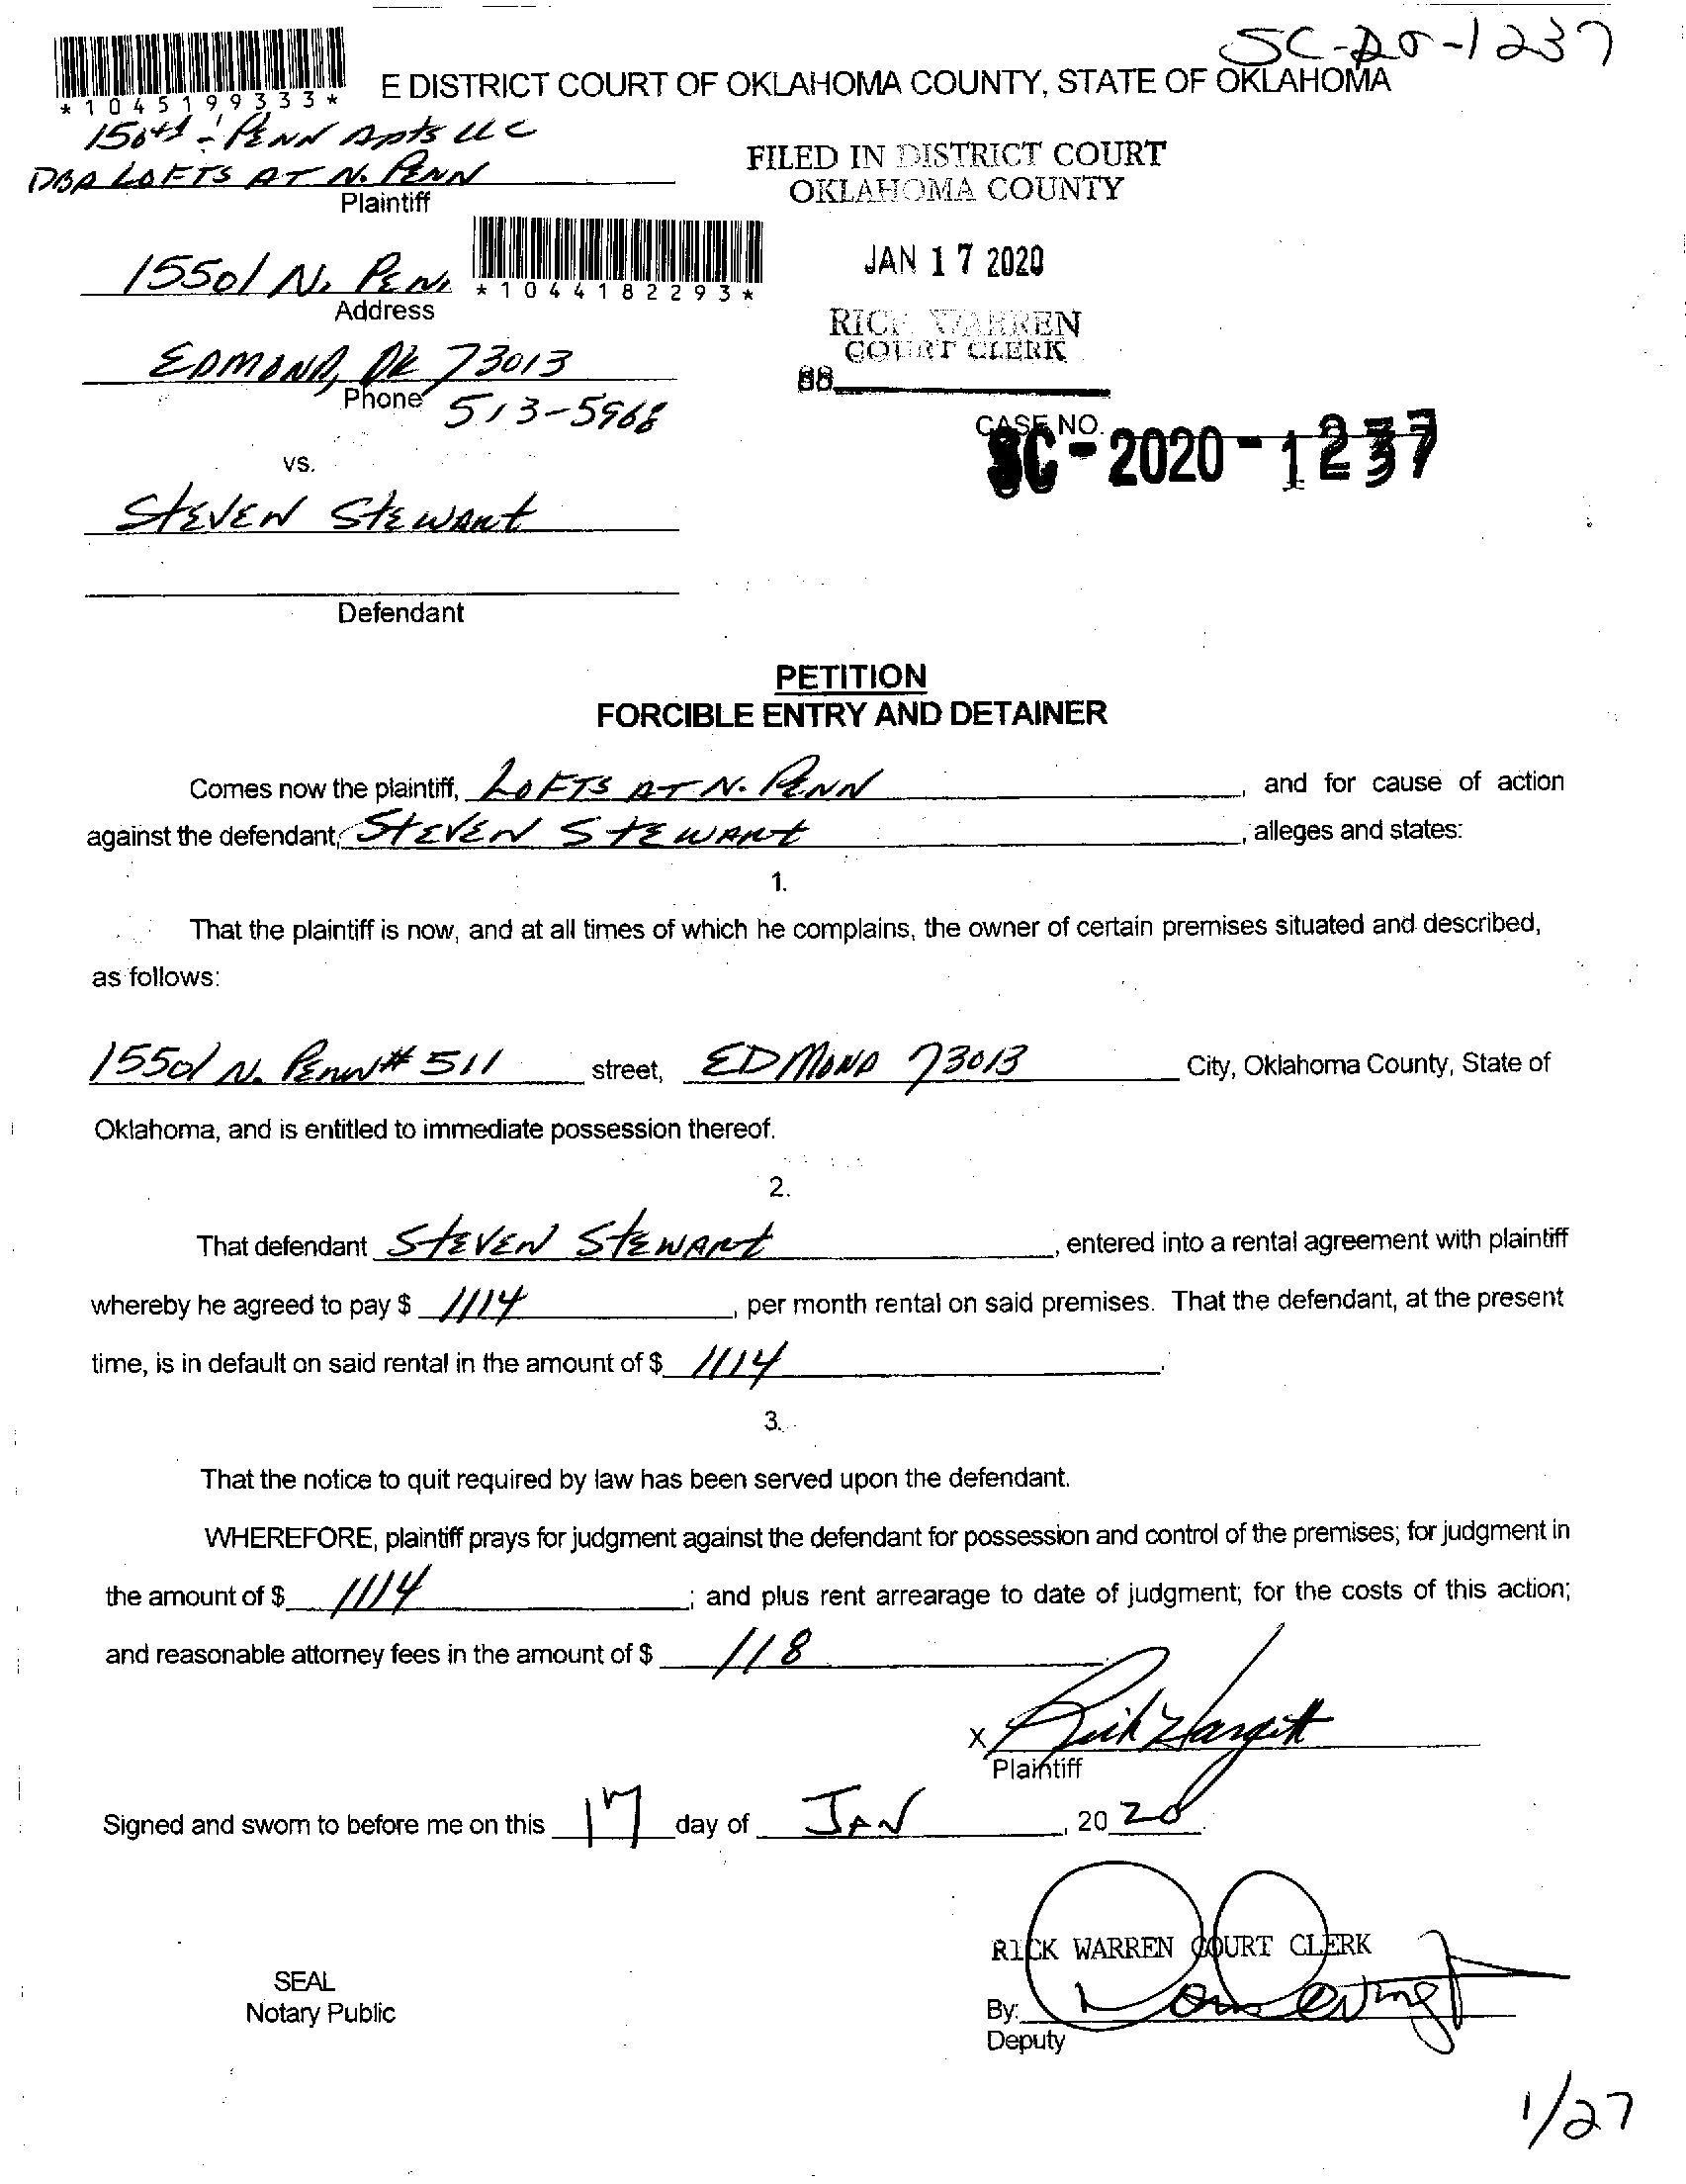 SC-20-1237
*1045199333*
E DISTRICT COURT OF OKLAHOMA COUNTY, STATE OF OKLAHOMA
150th - PENN Apts LLC
DBA LOFTS AT N. PENN
Plaintiff
FILED IN DISTRICT COURT
OKLAHOMA COUNTY
JAN 17 2020
RICK WARREN
COURT CLERK
88
15501 N. PENN
*1044182293*
Address
EDMOND, OK 73013
Phone 513-5968
CASE NO.
SC-2020-1237
vs.
STEVEN STEWART
Defendant
PETITION
FORCIBLE ENTRY AND DETAINER
Comes now the plaintiff, LOFTS AT N. PENN, and for cause of action
against the defendant, STEVEN STEWART, alleges and states:
1.
That the plaintiff is now, and at all times of which he complains, the owner of certain premises situated and described,
as follows:
15501 N. PENN # 511 street, EDMOND 73013 City, Oklahoma County, State of
Oklahoma, and is entitled to immediate possession thereof.
2.
That defendant STEVEN STEWART, entered into a rental agreement with plaintiff
whereby he agreed to pay $ 1114, per month rental on said premises. That the defendant, at the present
time, is in default on said rental in the amount of $ 1114.
3.
That the notice to quit required by law has been served upon the defendant.
WHEREFORE, plaintiff prays for judgment against the defendant for possession and control of the premises; for judgment in
the amount of $ 1114; and plus rent arrearage to date of judgment; for the costs of this action;
and reasonable attorney fees in the amount of $ 118.
X Rick Hargett
Plaintiff
Signed and sworn to before me on this 17 day of JAN, 20 20.
RICK WARREN COURT CLERK
SEAL
Notary Public
By:
Deputy
1/27